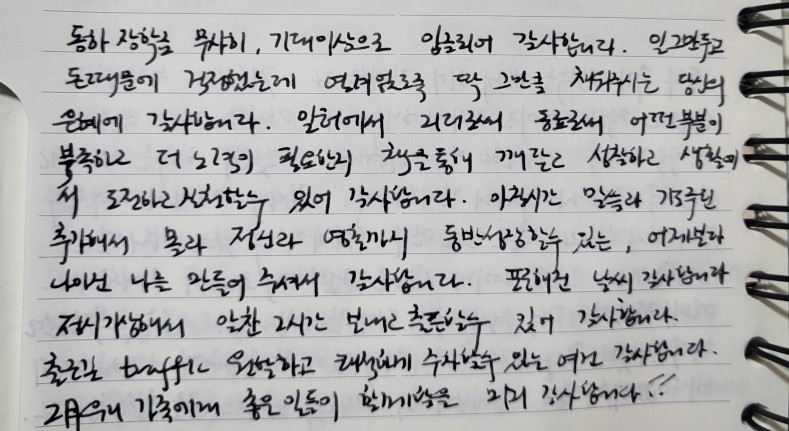 동하 장학금 무사히, 기대이상으로 입금되어 감사합니다. 일그만두고
돈때문에 걱정했는데 염려없도록 딱 그만큼 채워주시는 당신의
은혜에 감사합니다. 일터에서 리더로써 동료로써 어떤부분이
부족하고 더 노력이 필요한지 책을통해 깨닫고 성찰하고 생활에
서 도전하고 실천할수 있어 감사합니다. 아침시간 말씀과 기도루틴
추가해서 몸과 정신과 영혼까지 동반성장할수 있는, 어제보다
나아진 나를 만들어 주셔서 감사합니다. 포근해진 날씨 감사합니다
적시기상해서 알찬 2시간 보내고 출근할수 있어 감사합니다.
출근길 traffic 원활하고 쾌적하게 주차할수 있는 여건 감사합니다.
2月 우리 가족에게 좋은일들이 함께함을 미리 감사합니다!!